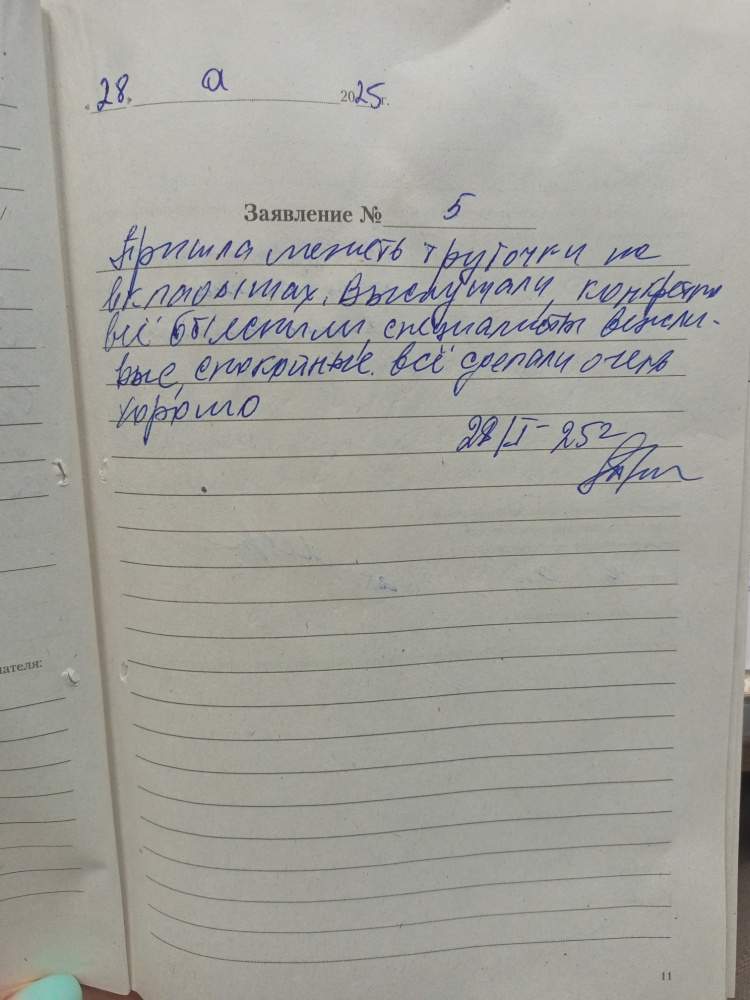 «28» а 2025г.
Заявление № 5
Пришла менять трубочки на
вкладышах. Выслушали, конкретно
всё объяснили, специалисты вежли-
вые, спокойные. всё сделали очень
хорошо
28/I-25г
ателя:
11